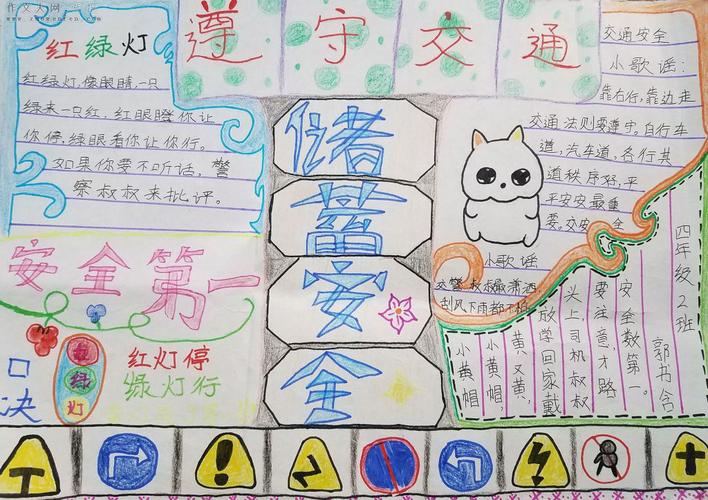 作文人网
遵守交通
红绿灯
红绿灯,像眼睛,一只
绿来一只红,红眼瞪你让
你停,绿眼看你让你行。
如果你要不听话,警
察叔叔来批评。
安全第一
口决
红
绿
灯
红灯停
绿灯行
储
蓄
安
全
交通安全
小歌谣:
靠右行,靠边走
交通法则要遵守。自行车
道,汽车道,各行其
道秩序路,平
平安安最重
要。交安全
小歌谣
交警叔叔最潇洒
刮风下雨都不怕
小黄帽,
小黄帽,
黄又黄,
放学回家戴
头上司机叔叔
要注意才路
安全数第一。
郭书含
四年级2班